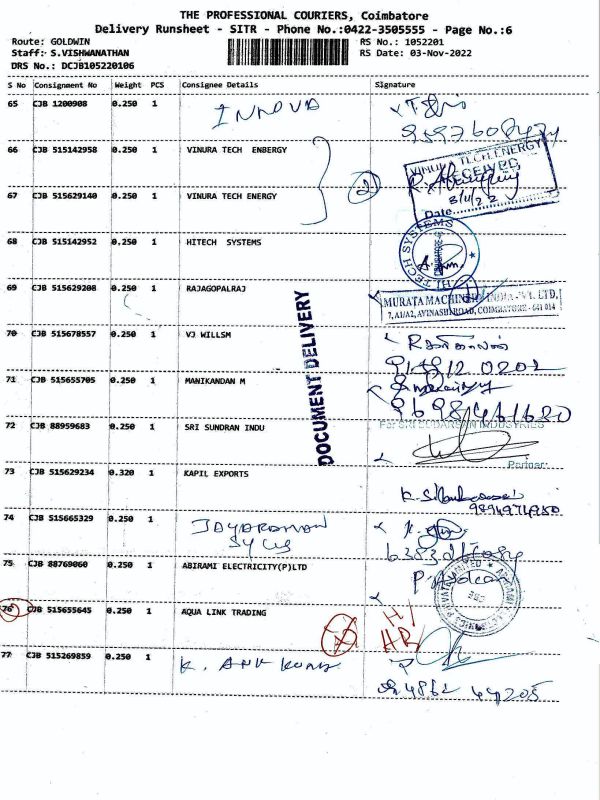 THE PROFESSIONAL COURIERS, Coimbatore
Delivery Runsheet - SITR - Phone No.:0422-3505555 - Page No.:6
Route: GOLDWIN
RS No.: 1052201
Staff: S.VISHWANATHAN
RS Date: 03-Nov-2022
DRS No.: DCJB105220106
S No Consignment No Weight PCS Consignee Details Signature
65 CJB 1200908 0.250 1 INNOVA
66 CJB 515142958 0.250 1 VINURA TECH ENBERGY
VINURA TECH ENERGY
RECEIVED
67 CJB 515629140 0.250 1 VINURA TECH ENERGY
2
3/11/22
Date
68 CJB 515142952 0.250 1 HITECH SYSTEMS
HI TECH SYSTEMS
69 CJB 515629208 0.250 1 RAJAGOPALRAJ
MURATA MACHINERY INDIA PVT. LTD,
7, A1/A2, AVINASHI ROAD, COIMBATORE - 641 014
DOCUMENT DELIVERY
70 CJB 515678557 0.250 1 VJ WILLSM
71 CJB 515655705 0.250 1 MANIKANDAN M
72 CJB 88959683 0.250 1 SRI SUNDRAN INDU
For SRI SUDARSAN INDUSTRIES
Partner
73 CJB 515629234 0.320 1 KAPIL EXPORTS
74 CJB 515665329 0.250 1
75 CJB 88769060 0.250 1 ABIRAMI ELECTRICITY(P)LTD
76 CJB 515655645 0.250 1 AQUA LINK TRADING
77 CJB 515269859 0.250 1